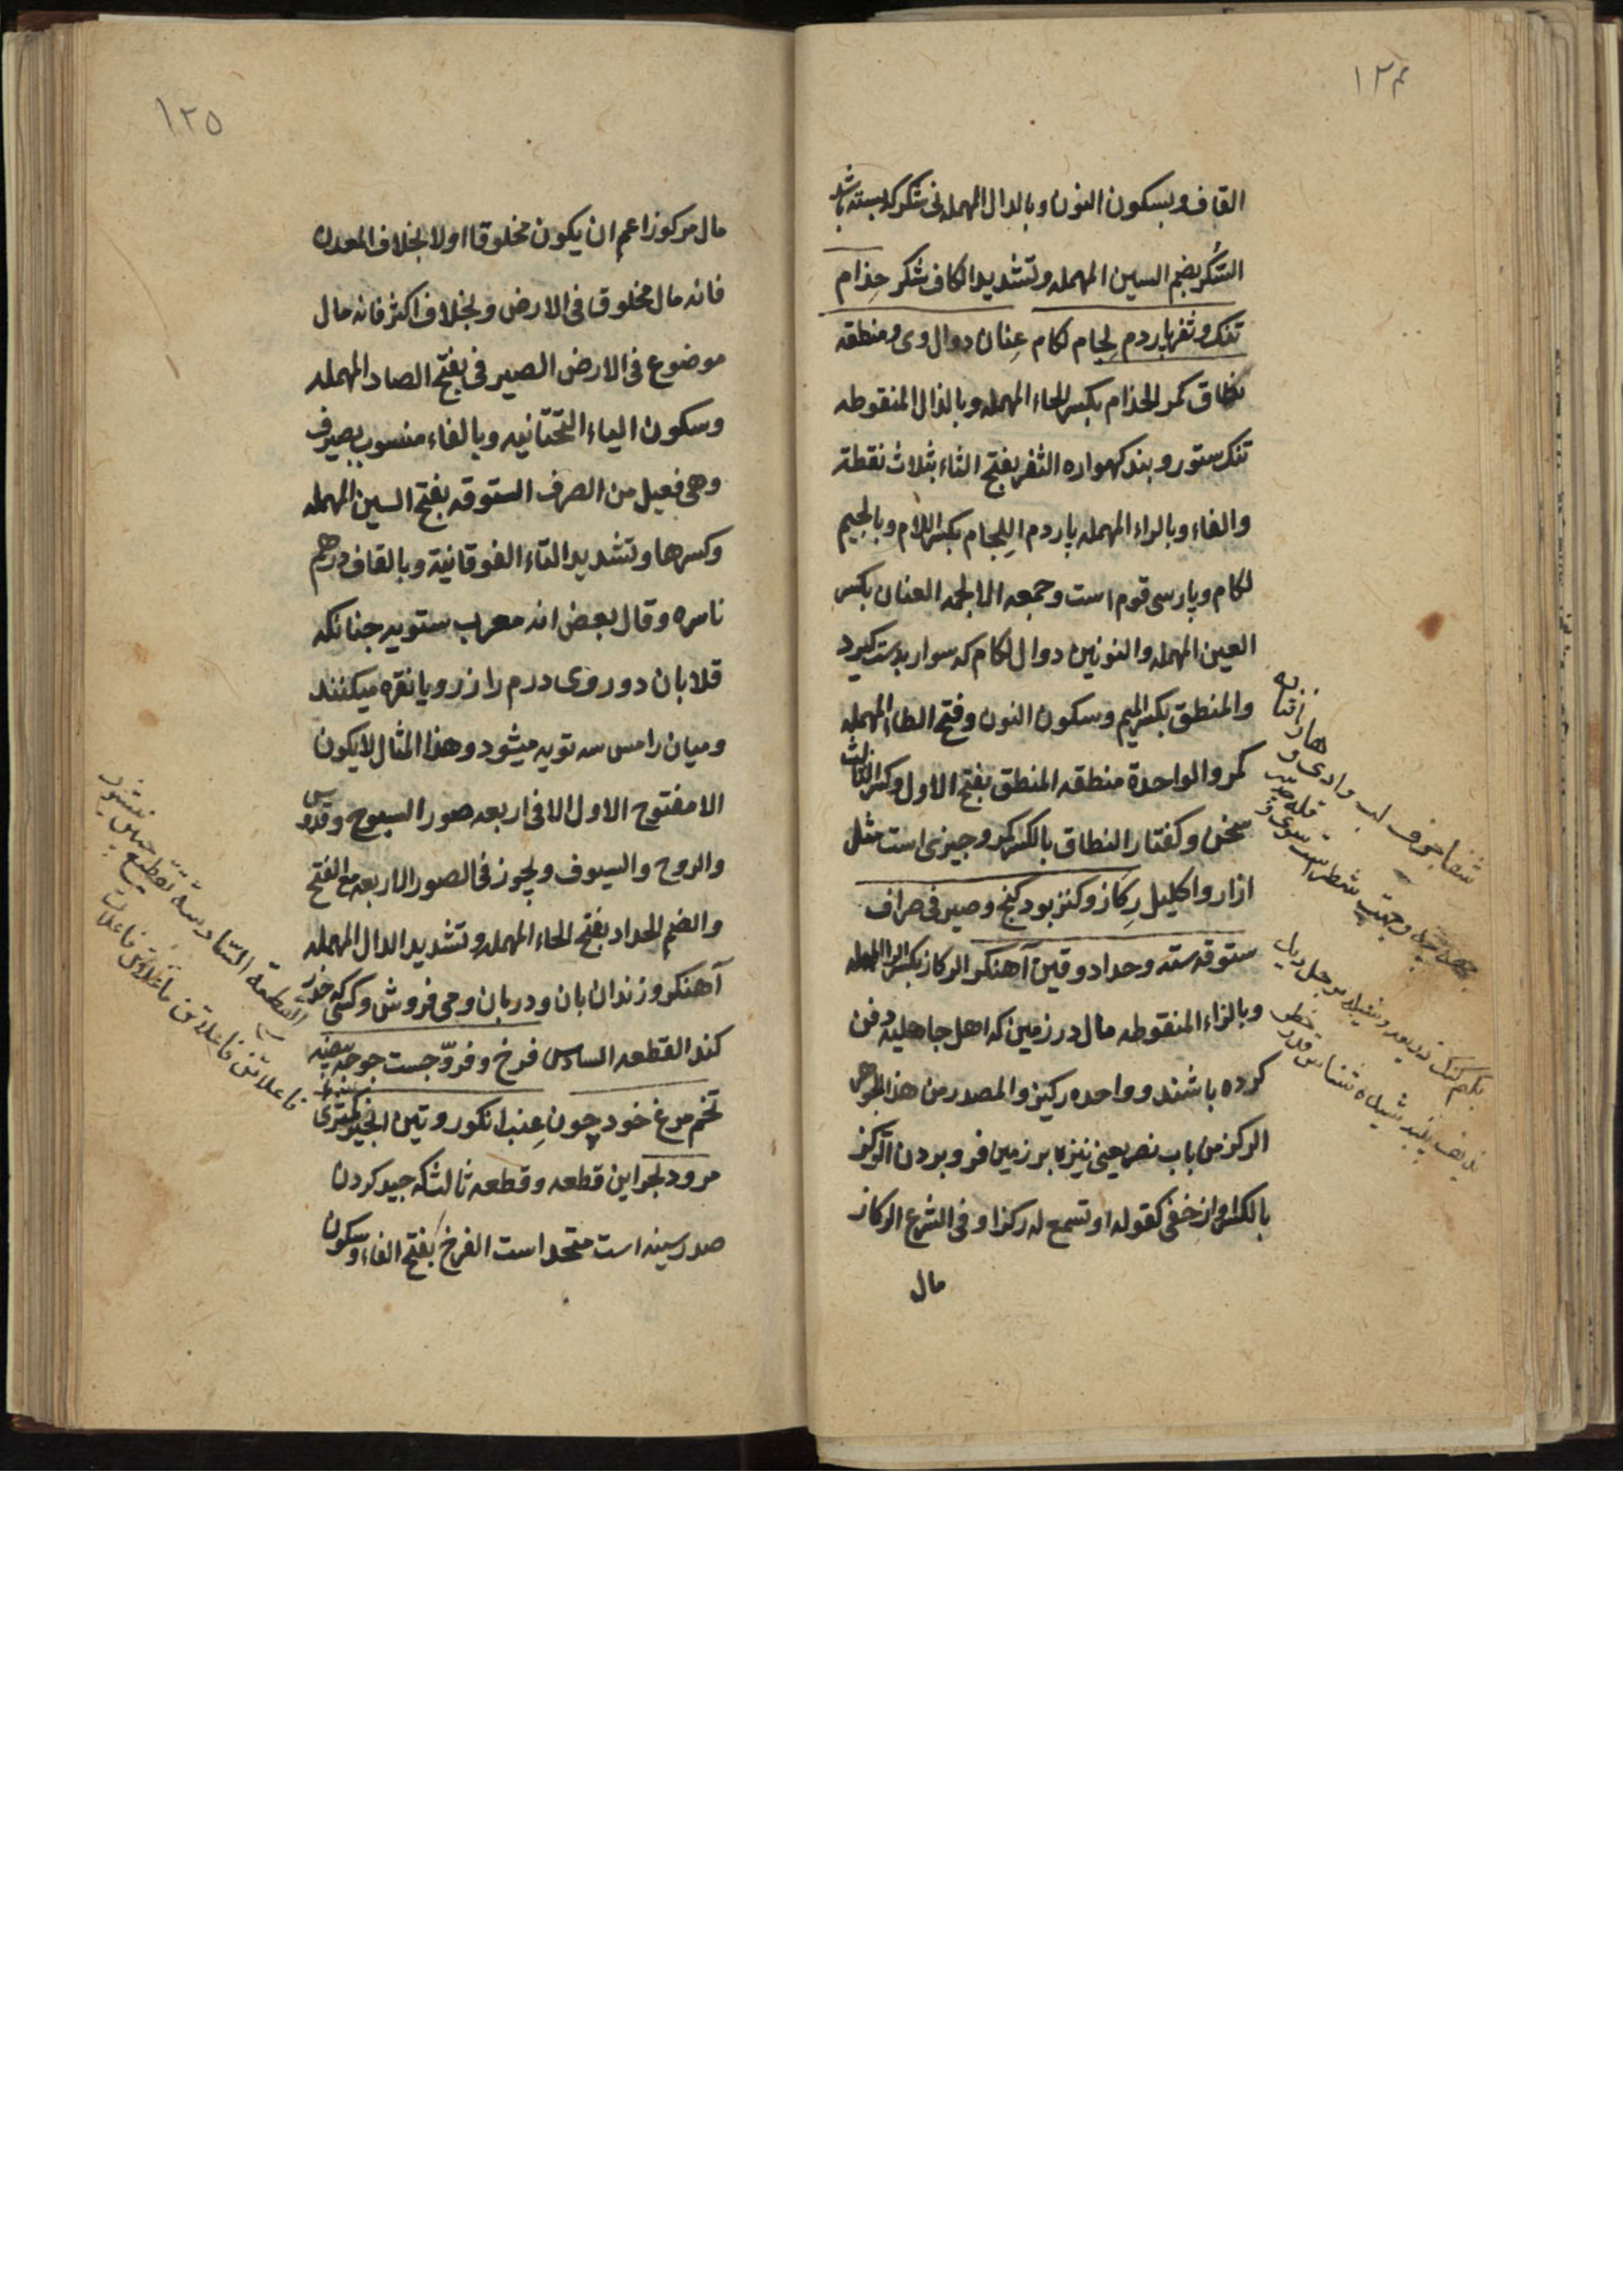 ١٢٤
القاف وبسكون النون وبالدال المهمله نى شكر كه بسته باشد
السُّكر بضم السين المهمله وتشديد الكاف شكر حِذام
تنك و ثفر پاردم لِجام لكام عِنان دوال وى و منطقه
نطاق كمر الحذام بكسر الحاء المهمله وبالذال المنقوطه
تنك ستور و بند كهواره الثفر بفتح الثاء بثلاث نقطة
والفاء وبالراء المهمله پاردم اللِجام بكسر اللام وبالجيم
لكام وپارسى قوم است وجمعه الالجمه العنان بكسر
العين المهمله والنونين دوال لكام كه سوار بدست كيرد
والمنطق بكسر الميم وسكون النون وفتح الطاء المهمله
كمر والواحدة منطقه المنطق بفتح الاول وكسر الثالث
سخن وكفتار النطاق بالكسر كمر وچيزى است مثل
ازار واكليل رِكاز وكنز بود كنج وصيرفى صراف
ستوقه سته وحداد وقين آهنكر الركاز بكسر الراء المهمله
وبالزاء المنقوطه مال در زمين كه اهل جاهليه دفن
كرده باشند و واحده ركيز والمصدر من هذا الجوهر
الركز من باب نصر يعنى نيزه بر زمين فرو بردن الركز
بالكسر آواز خفى كقوله او تسمع له ركزا وفى الشرع الركاز
مال
شفا جرف لب وادى و
بكم كنك
١٢٥
مال مركوز اعم ان يكون مخلوقا اولا بخلاف المعدن
فانه مال مخلوق فى الارض وبخلاف اكثر فانه مال
موضوع فى الارض الصيرفى بفتح الصاد المهمله
وسكون الياء التحتانيه وبالفاء منسوب بصيرف
وهى فعيل من الصرف الستوقه بفتح السين المهمله
وكسرها وتشديد التاء الفوقانية وبالقاف درهم
ناسره وقال بعض انه معرب ستويه چنانكه
قلابان دو روى درم را زر ويا نقره ميكنند
وميان را مس سه تويه ميشود وهذا المثال لا يكون
الا مفتوح الاول الا فى اربعه صور السبوح وقدوس
والروح والسيوف ويجوز فى الصور الاربعه مع الفتح
والضم الحداد بفتح الحاء المهمله وتشديد الدال المهمله
آهنكر و زندان بان ودربان ومى فروش وكسى كه
كند القطعه السادس فرخ و فرّوجست جوجه بيضه
تخم مرغ خود چون عِنب انكور و تين انجير كمثرى
مرود بحر اين قطعه وقطعه ثالث كه جيد كردن
صدر سينه است متحد است الفرخ بفتح الفاء وسكون
القطعة السّادسة تقطيع
فاعلاتن فاعلاتن فاعلاتن فاعلات